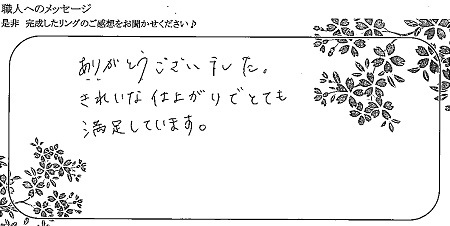 職人へのメッセージ
是非 完成したリングのご感想をお聞かせください♪
ありがとうございました。
きれいな仕上がりでとても
満足しています。